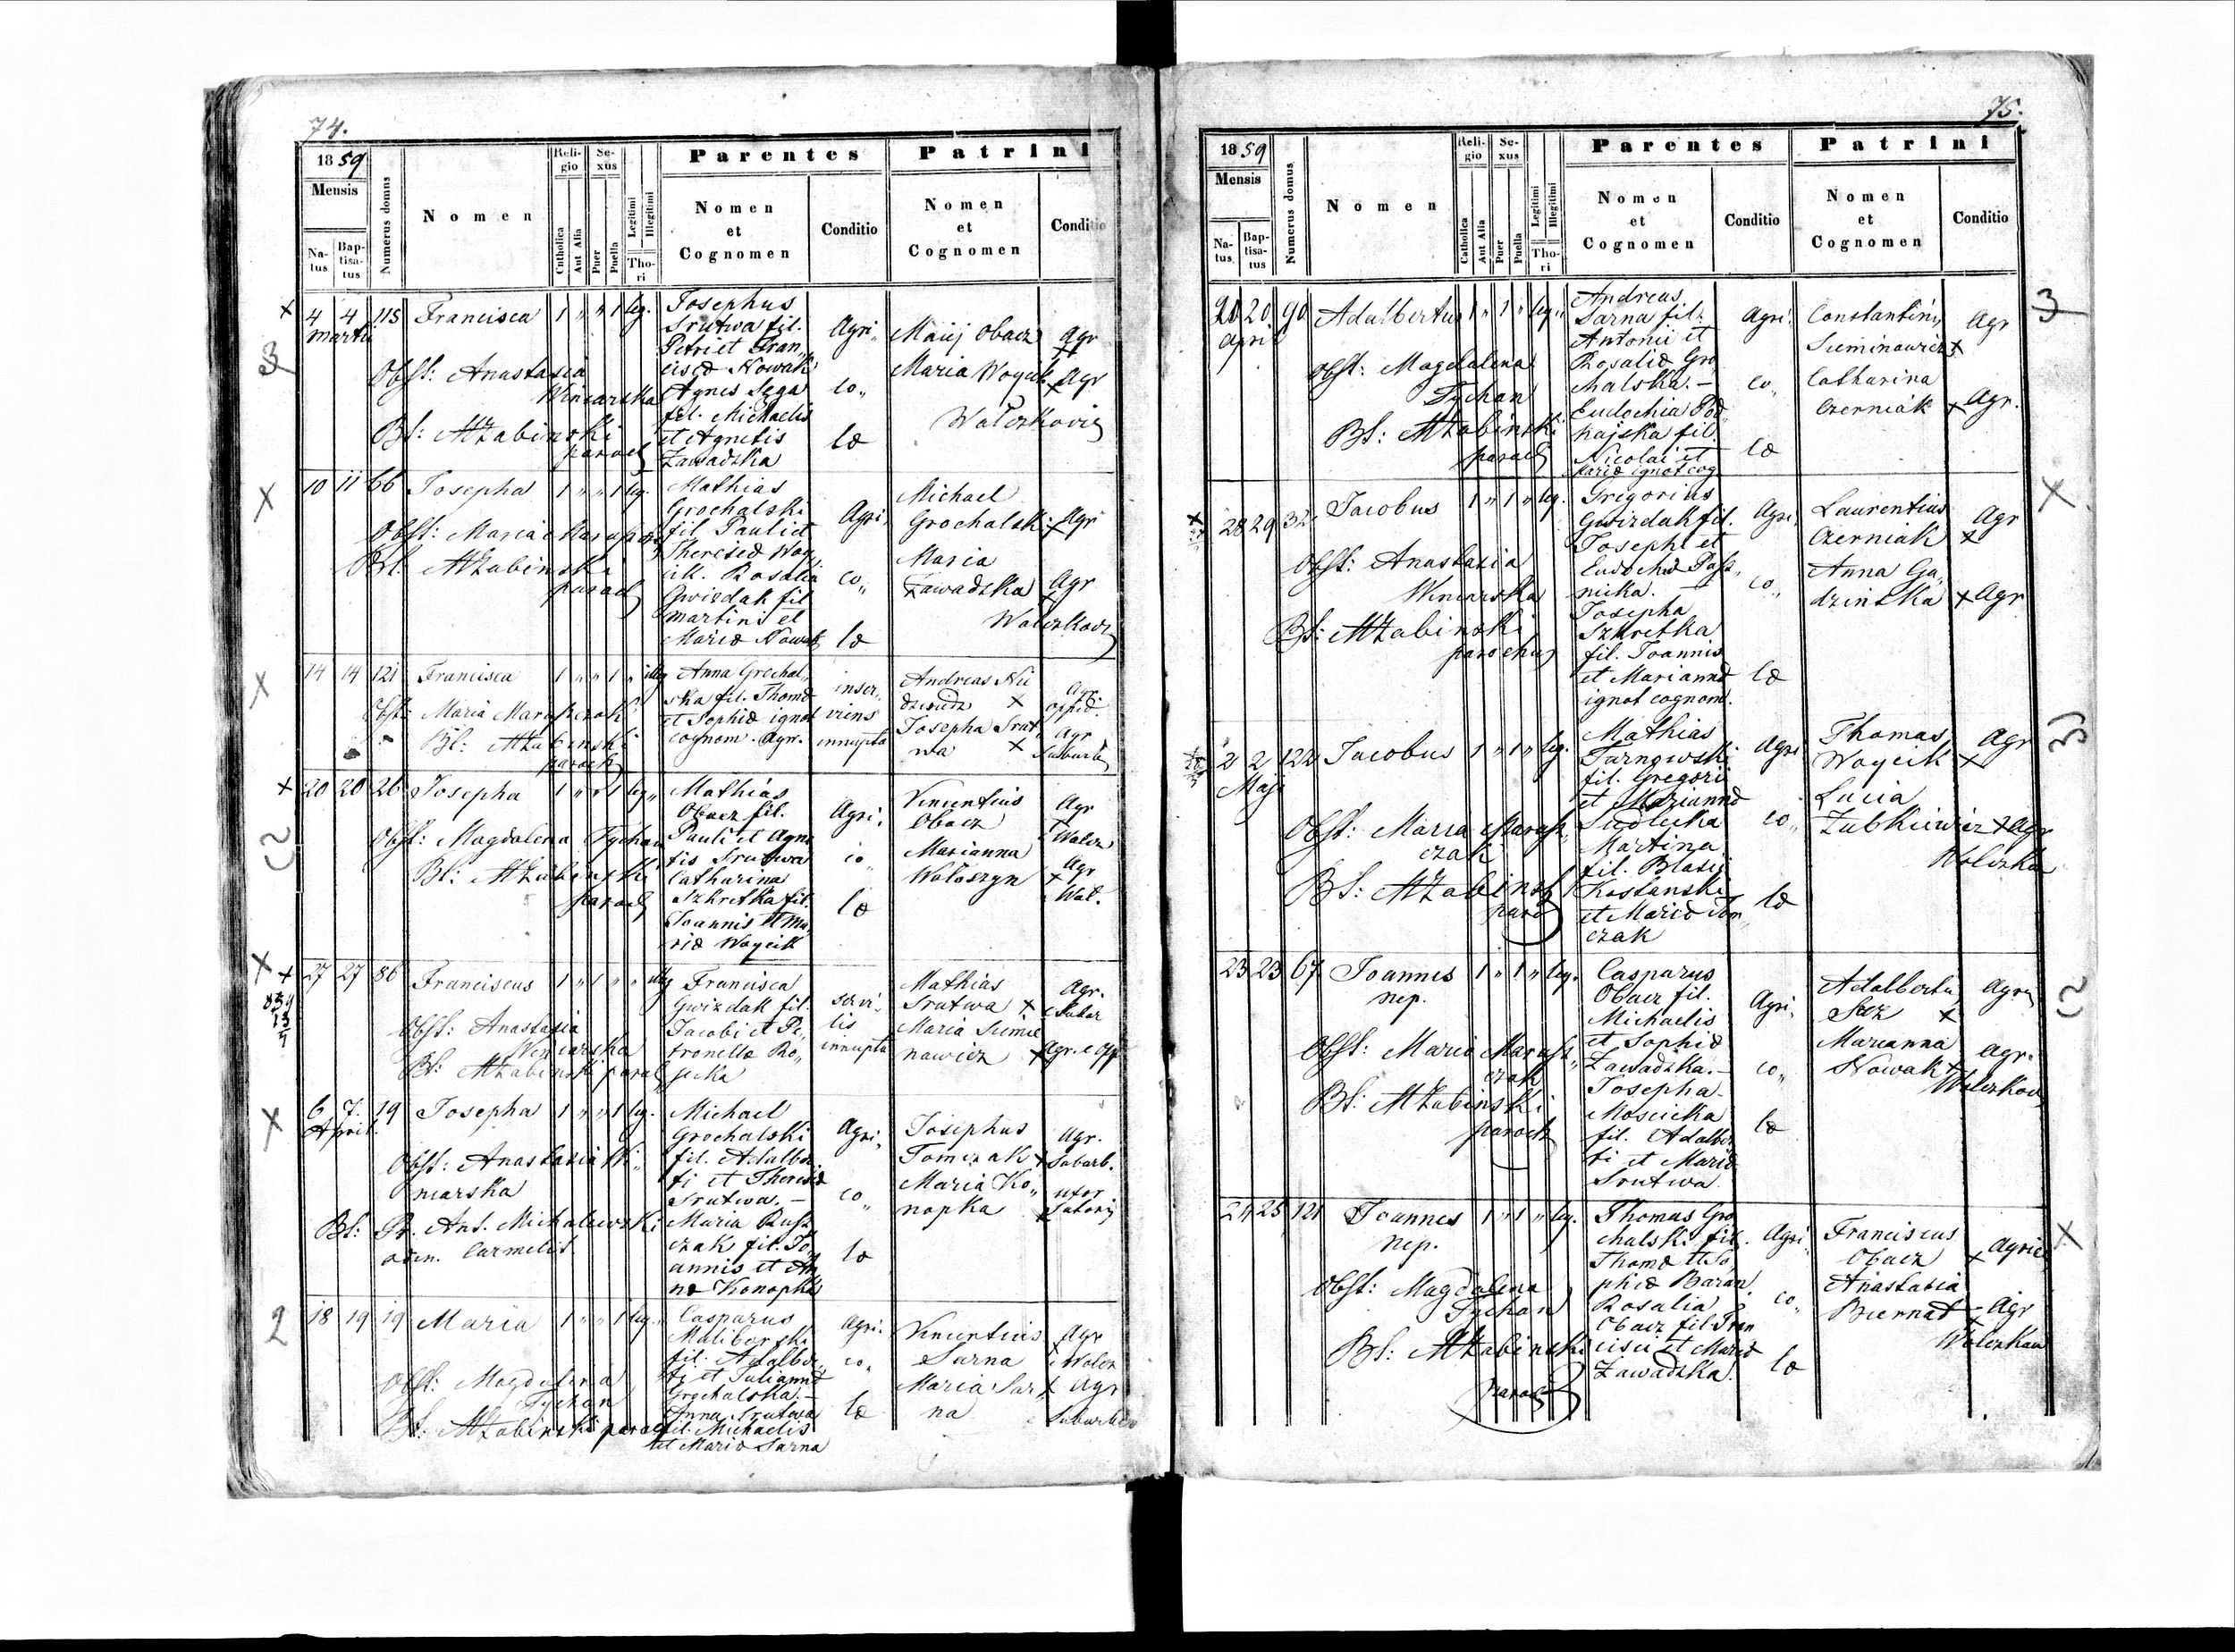 74.
1859
Mensis
Natus
Baptisatus
Numerus domus
Nomen
Religio
Catholica
Aut Alia
Sexus
Puer
Puella
Legitimi
Illegitimi
Thori
Parentes
Nomen et Cognomen
Conditio
Patrini
Nomen et Cognomen
Conditio
4 4 115 Francisca 1 " " 1 leg.
Martii
Obst: Anastasia
Winiarska
Bt: Żabinski
paroch
Josephus
Srutwa fil.
Petri et Fran,,
cisca Nowak
Agnes Szga
fil. Michaelis
et Agnetis
Zawadzka
Agri,,
co,,
Maij Obacz Agr
Maria Woycik Agr
10 11 66 Josepha 1 " " 1 leg.
Obst: Maria
Bt. Żabinski
paroch
Mathias
Grochalski
fil. Pauli et
Theresiæ Woy
cik. Rosalia
Gwizdak fil
Martini et
Mariæ Nowak
Agri,
co,,
Michael
Grochalski Agr
Maria
Zawadzka Agr
14 14 121 Francisca 1 " " 1 " illeg
Obst: Maria
Bt: Żabinski
paroch
Anna Grochal,
ska fil. Thomæ
et Sophiæ ignot
cognom. Agr.
inser,
viens
innupta
Andreas
Josepha Srut,
wa
Agr.
20 20 26 Josepha 1 " " 1 leg,,
Obst: Magdalena Tychan
Bt: Żabinski
paroch
Mathias
Obacz fil.
Pauli et Agne
tis Srutwa
Catharina
Szkretka fil.
Joannis et Ma,
riæ Woycik
Agri,
co
Vincentius
Obacz
Marianna
Wołoszyn
Agr
Agr
27 27 86 Franciscus 1 " 1 " " illeg
Obst: Anastasia
Winiarska
Bt: Żabinski paroch
Francisca
Gwizdak fil.
Jacobi et Pe,,
tronellæ Ro,,
innupta
Mathias
Srutwa
Maria Siemie
nawicz
Agr.
6 7. 19 Josepha 1 " " 1 leg.
April.
Obst: Anastasia Wi,,
niarska
Bt: Pr. Ant. Michalewski
ordin. Carmelit
Michael
Grochalski
fil. Adalber
ti et Theresiæ
Srutwa. —
Maria Rusz
czak fil. Jo
annis et An
næ Konopka
Agri,
co
Josephus
Tomczak
Maria Ko,,
nopka
Agr.
Suburb.
18 19 19 Maria 1 " " 1 leg.
Obst: Magdalena
Tychan
Bt: Żabinski paroch
Casparus
Maliborski
fil. Adalber
ti et Julianna
Grochalska. —
Anna Srutwa
fil. Michaelis
et Mariæ Sarna
Agri.
co,,
Vincentius
Sarna
Maria Sar
na
Agr
Agr
75.
1859
Mensis
Natus
Baptisatus
Numerus domus
Nomen
Religio
Catholica
Aut Alia
Sexus
Puer
Puella
Legitimi
Illegitimi
Thori
Parentes
Nomen et Cognomen
Conditio
Patrini
Nomen et Cognomen
Conditio
20 20 90 Adalbertus 1 " 1 " leg,,
April
Obst: Magdalena
Tychan
Bt: Żabinski
paroch
Andreas
Sarna fil.
Antonii et
Rosaliæ Gro,
chalska. —
Eudochia Pod
hajska fil.
Nicolai et
Mariæ ignot cog
Agri.
co,,
Constantinus
Sieminawicz
Catharina
Czerniak
Agr
Agr.
28 29 32 Jacobus 1 " 1 " leg.
Obst: Anastasia
Winiarska
Bt: Żabinski
parochus
Gregorius
Gwizdak fil.
Josephi et
nicka. —
Josepha
Szkretka
fil. Joannis
et Mariannæ
ignot cognom.
Agri,
co,,
Laurentius
Czerniak
Anna Ga,
dzinska
Agr
Agr
2 2 122 Jacobus 1 " 1 " leg.
Maji
Obst: Maria Marasz,,
czak
Bt: Żabinsk
paroch
Mathias
Tarnowski
fil. Gregorii
et Mariannæ
Sudlecka
Martina
fil. Blasij
Kostanski
et Mariæ Tom,,
czak
Agri
co,,
Thomas
Woycik
Lucia
Zubkiewicz
Agr
Agr
23 23 67 Joannes 1 " 1 " leg.
nep.
Obst: Maria Marasz,,
czak
Bt: Żabinski
paroch
Casparus
Obacz fil.
Michaelis
et Sophiæ
Zawadzka. —
Josepha
Moscicka
fil. Adalber
ti et Mariæ
Srutwa
Agri,
co,,
Adalbertus
Marianna
Nowak
Agr.
24 25 121 Joannes 1 " 1 " leg.
nep.
Obst: Magdalena
Tychan
Bt: Żabinski
paroch
Thomas Gro
chalski fil.
Thomæ et So
phiæ Baran.
Rosalia
Obacz fil Fran
cisci et Mariæ
Zawadzka.
Agri
co,,
Franciscus
Obacz
Anastasia
Biernat
Agric
Agr